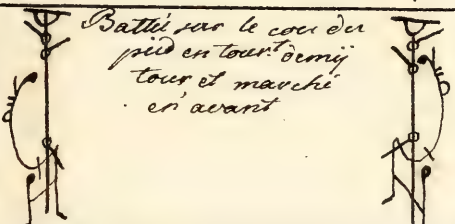 Battu sur le cou du
pied en tourt demij
tour et marché
en avant